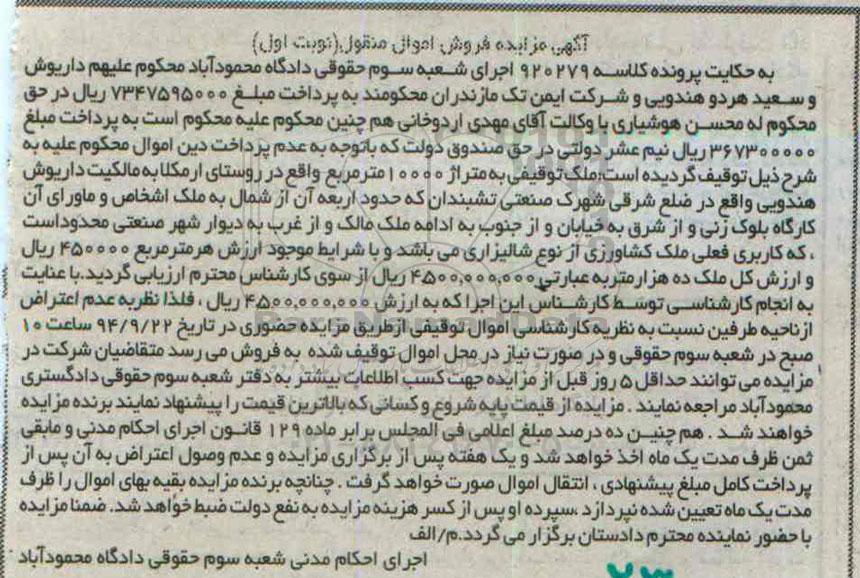 آگهی مزایده فروش اموال منقول(نوبت اول)
به حکایت پرونده کلاسه ۹۲۰۲۷۹ اجرای شعبه سوم حقوقی دادگاه محمودآباد محکوم علیهم داریوش
و سعید هردو هندویی و شرکت ایمن تک مازندران محکومند به پرداخت مبلغ ۷۳۴۷۵۹۵۰۰۰ ریال در حق
محکوم له محسن هوشیاری با وکالت آقای مهدی اردوخانی هم چنین محکوم علیه محکوم است به پرداخت مبلغ
۳۶۷۳۰۰۰۰۰ ریال نیم عشر دولتی در حق صندوق دولت که باتوجه به عدم پرداخت دین اموال محکوم علیه به
شرح ذیل توقیف گردیده است:ملک توقیفی به متراژ ۱۰۰۰۰ مترمربع واقع در روستای ارمکلا به مالکیت داریوش
هندویی واقع در ضلع شرقی شهرک صنعتی تشبندان که حدود اربعه آن از شمال به ملک اشخاص و ماورای آن
کارگاه بلوک زنی و از شرق به خیابان و از جنوب به ادامه ملک مالک و از غرب به دیوار شهر صنعتی محدوداست
، که کاربری فعلی ملک کشاورزی از نوع شالیزاری می باشد و با شرایط موجود ارزش هرمترمربع ۴۵۰۰۰۰ ریال
و ارزش کل ملک ده هزارمتربه عبارتی ۴۵۰۰,۰۰۰,۰۰۰ ریال از سوی کارشناس محترم ارزیابی گردید.با عنایت
به انجام کارشناسی توسط کارشناس این اجرا که به ارزش ۴۵۰۰,۰۰۰,۰۰۰ ریال ، فلذا نظربه عدم اعتراض
از ناحیه طرفین نسبت به نظریه کارشناسی اموال توقیفی ازطریق مزایده حضوری در تاریخ ۹۴/۹/۲۲ ساعت ۱۰
صبح در شعبه سوم حقوقی و در صورت نیاز در محل اموال توقیف شده به فروش می رسد متقاضیان شرکت در
مزایده می توانند حداقل ۵ روز قبل از مزایده جهت کسب اطلاعات بیشتر به دفتر شعبه سوم حقوقی دادگستری
محمودآباد مراجعه نمایند . مزایده از قیمت پایه شروع و کسانی که بالاترین قیمت را پیشنهاد نمایند برنده مزایده
خواهند شد . هم چنین ده درصد مبلغ اعلامی فی المجلس برابر ماده ۱۲۹ قانون اجرای احکام مدنی و مابقی
ثمن ظرف مدت یک ماه اخذ خواهد شد و یک هفته پس از برگزاری مزایده و عدم وصول اعتراض به آن پس از
پرداخت کامل مبلغ پیشنهادی ، انتقال اموال صورت خواهد گرفت . چنانچه برنده مزایده بقیه بهای اموال را ظرف
مدت یک ماه تعیین شده نپردازد ،سپرده او پس از کسر هزینه مزایده به نفع دولت ضبط خواهد شد. ضمنا مزایده
با حضور نماینده محترم دادستان برگزار می گردد.م/الف
اجرای احکام مدنی شعبه سوم حقوقی دادگاه محمودآباد